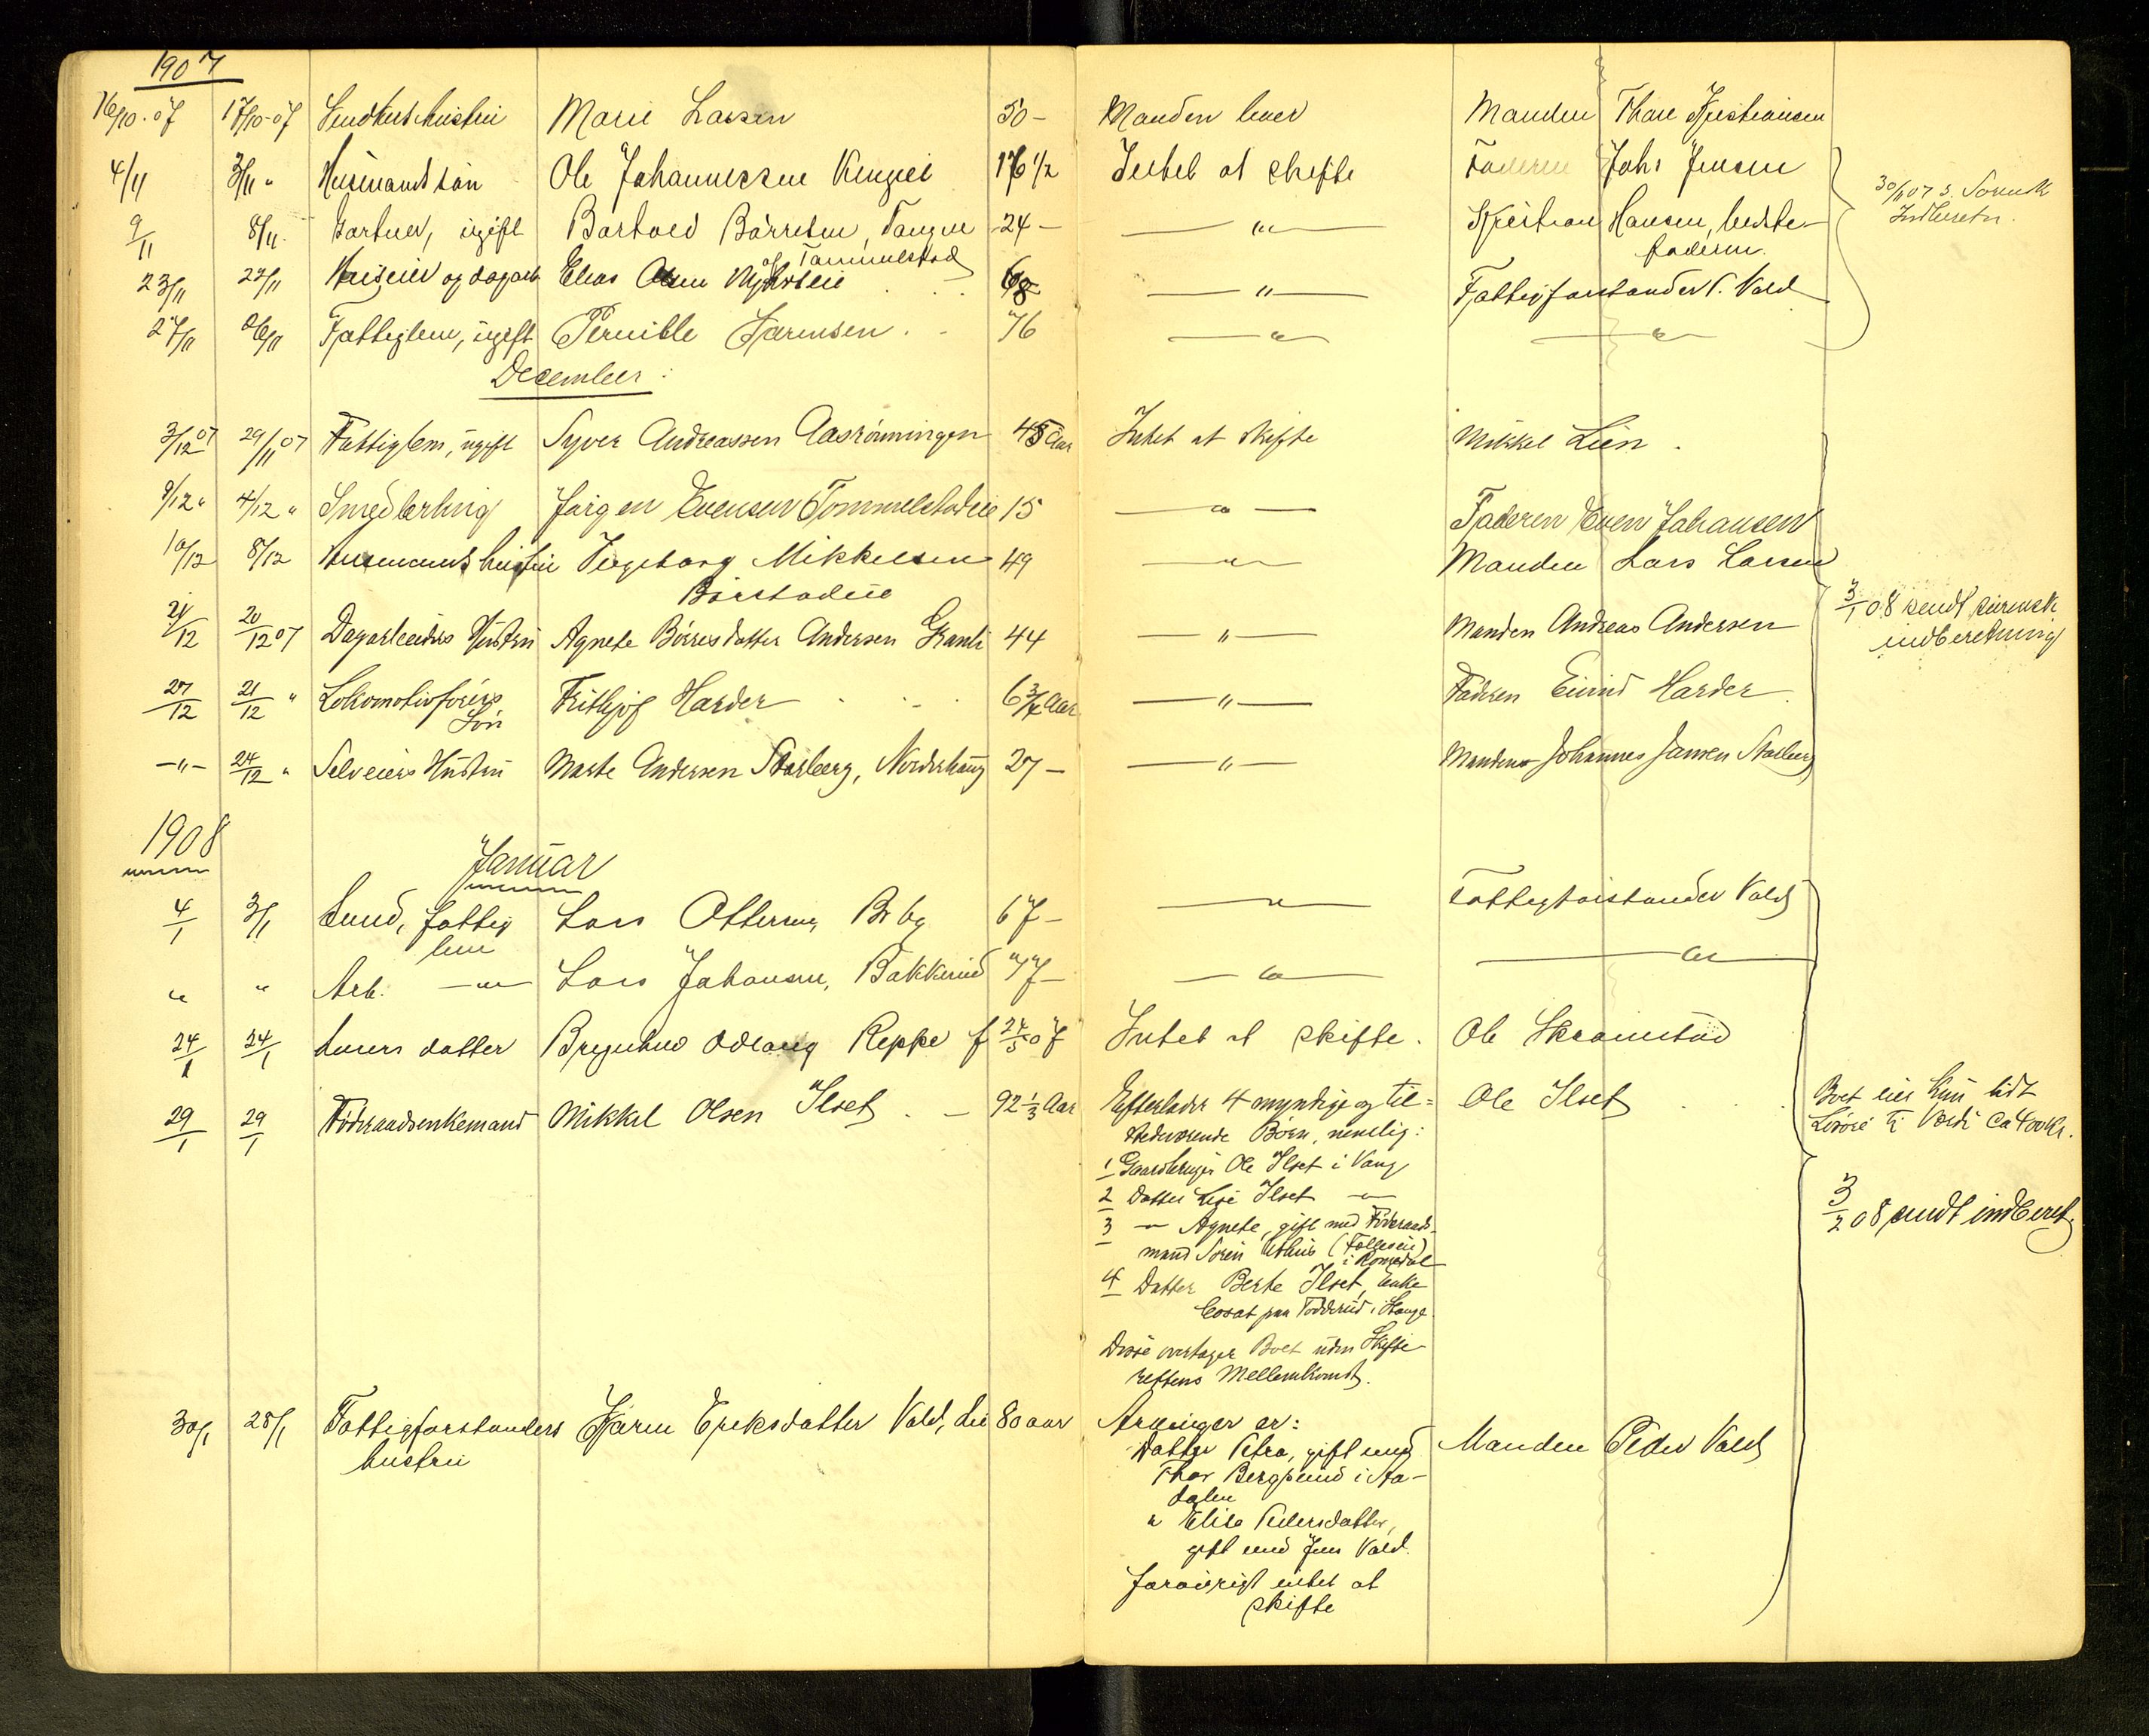 1907
16/10-07 17/10-07 hustru Marie Larsen 50 - Manden lever Manden Thore Kristiansen
4/11 3/11 " Husmandssøn Ole Johannessen 16 1/2 Intet at skifte Faderen Johs Jensen
9/11 8/11 Gartner, ugift Bortved Børresen, Tangen 24 - — " — Kristian Hansen, bedste-
faderen
30/11 07 s. Sorensk
Indberetn.
af Tommelstad
23/11 22/11 Huseier og dagarb Elias Olsen 68 — " — Fattigforstander P. Vold
27/11 26/11 Fattiglem, ugift Pernille Hermsen . - 76 — " — — " —
December:
3/12 07 29/11 07 Fattiglem, ugift Syver Andreassen Aasrønningen 45 Aar Intet at skifte Mikkel Lien .
9/12 " 4/12 " Smedlærling Jørgen Evensen Tommelstadeie 15 — " — Faderen Even Johansen
10/12 8/12 Husmands hustru Ingeborg Mikkelsen 49 — " — Manden Lars Larsen
Børstadeie
21/12 20/12 07 Dagarbeiders Hustru Agnete Børresdatter Andersen Granli 44 — " — Manden Andreas Andersen
3/1 08 sendt sorensk
indberetning
27/12 21/12 " Lokomotivførers Frithjof Harder . - . 6 3/4 Aar — " — Faderen Eivind Harder
Søn
— " — 24/12 " Selveiers Hustru Marte Andersen Storberg, Nordshaug 27 - — " — Manden Johannes Jansen
1908
Januar
4/1 3/1 fattig Lars Ottersen, 67 - — " — Fattigforstander Vold
lem
" " Arb. — " — Lars Johansen, Bakkerud 77 - — " — — " —
24/1 24/1 datter Brynhild Odlaug Reppe f 24/5 07 Intet at skifte . Ole Skramstad
29/1 29/1 Føderaadsenkemand Mikkel Olsen Ilset . - 92 1/3 Aar Efterlader 4 myndige og til= Ole Ilset . . . Boet eier kun lidt
stedeværende Børn, nemlig: Løsøre til Værdi ca 400 Kr.
1 Gaardbruger Ole Ilset i Vang
2 Datter Ilset — " —
3 — " — Agnete, gift med Føderaads-
mand Søren (Follerseie)
i Romedal
4 Datter Berte Ilset, Enke
bosat paa i Stange
3/2 08 sendt indberet.
Disse overtager Boet uden Skifte-
rettens Mellemkomst.
30/1 28/1 Fattigforstanders Karen Eriksdatter Vold, 80 aar Arvinger er: Manden Peder Vold
hustru
Datter Petra, gift med
Thor Bergsund i Aa-
dalen
" Elise Pedersdatter,
gift med Jens Vold.
forøvrigt intet at
skifte